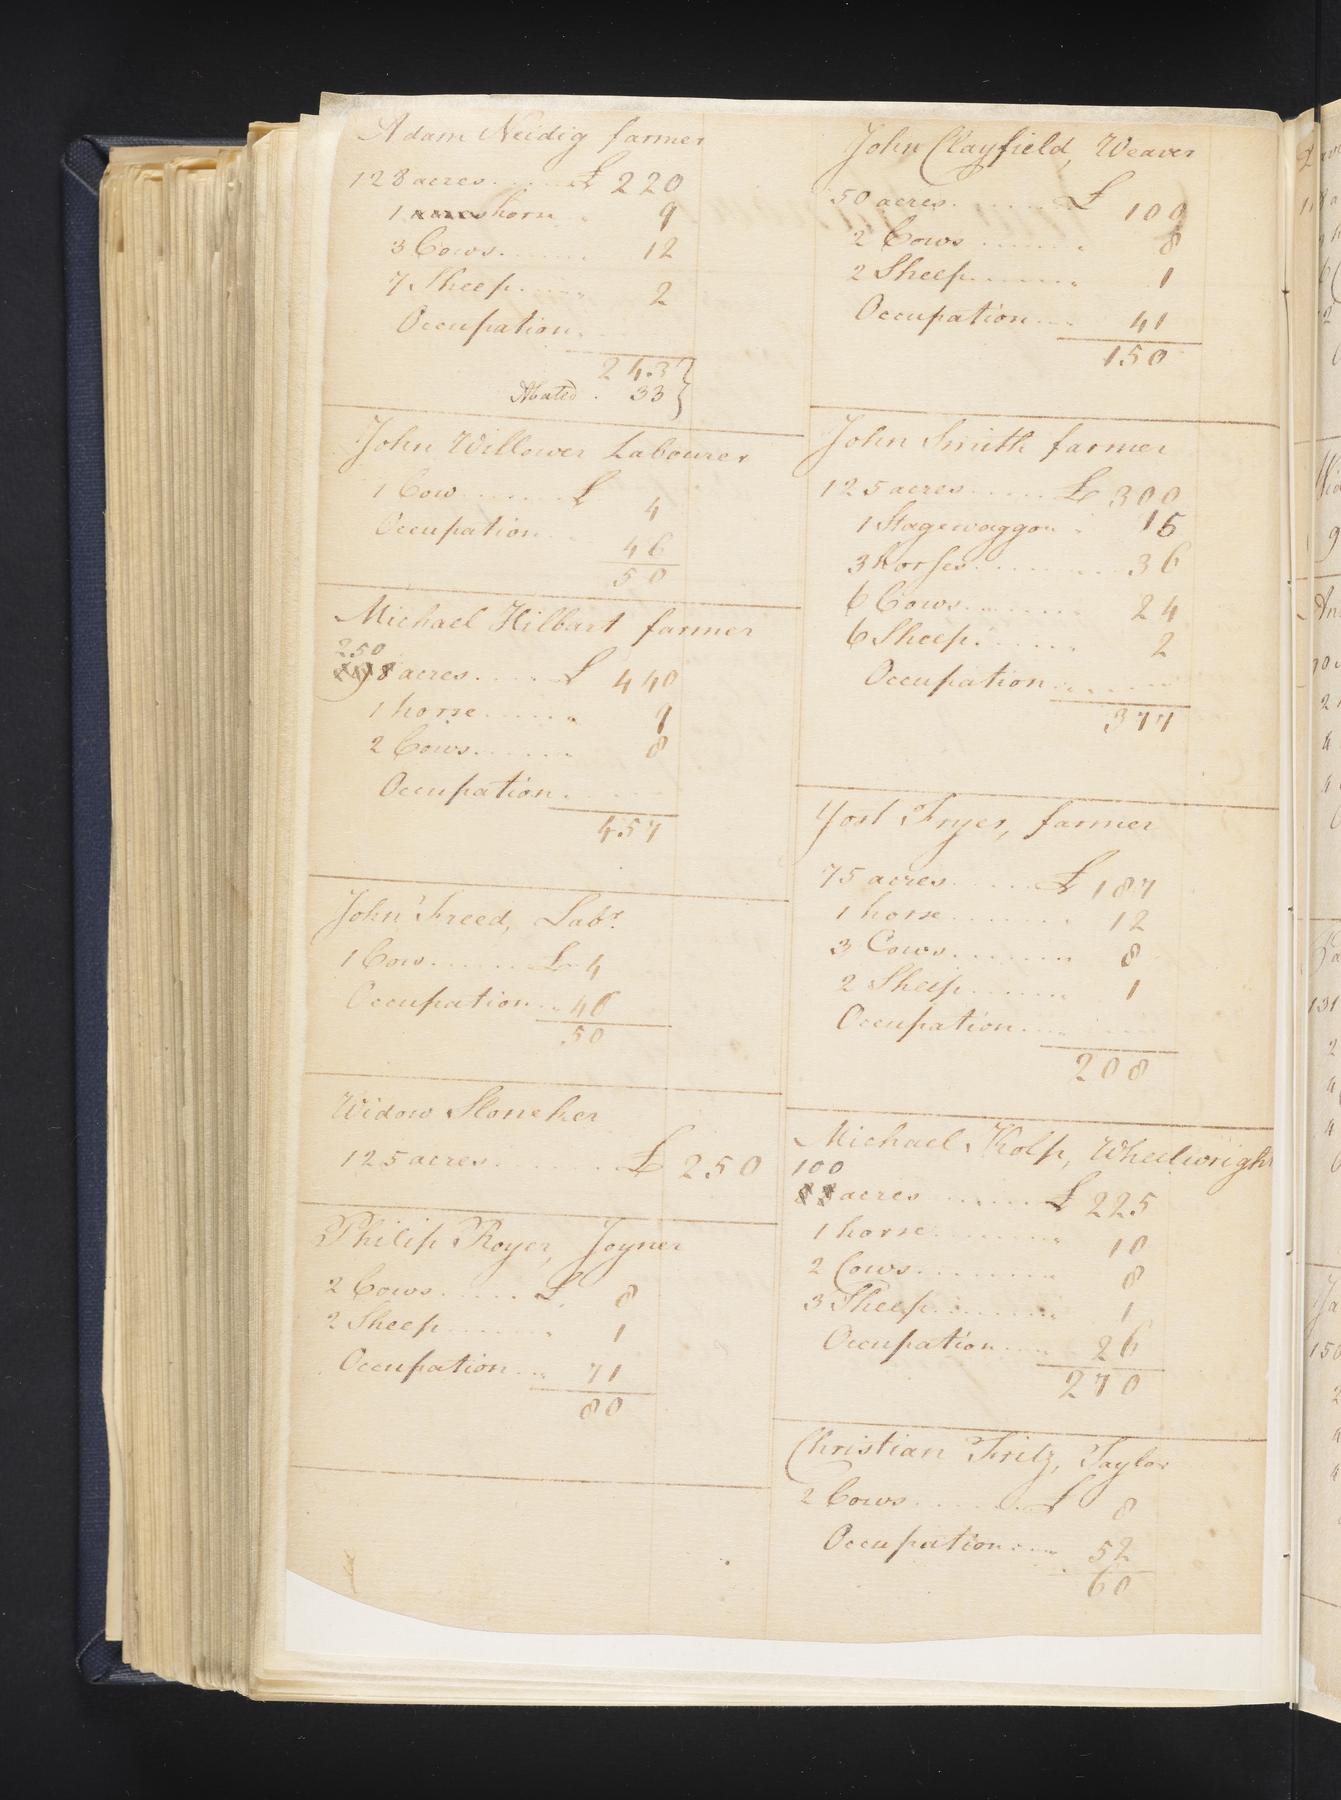 Adam Neidig farmer
128 acres £ 220
1 horse 9
3 Cows 12
7 Sheep 2
Occupation
243
Abated 33
John Willower Labourer
1 Cow £ 4
Occupation 46
50
Michael Hilbart farmer
250
acres £ 440
1 horse 9
2 Cows 8
Occupation
457
John Freed, Labr.
1 Cow £ 4
Occupation 46
50
Widow Sloneker
125 acres £ 250
Philip Royer, Joyner
2 Cows £ 8
2 Sheep 1
Occupation 71
80
John Clayfield, Weaver
50 acres £ 100
2 Cows 8
2 Sheep 1
Occupation 41
150
John Smith farmer
125 acres £ 300
1 Stagewaggon 15
3 horses 36
6 Cows 24
6 Sheep 2
Occupation
377
Yost Fryer, farmer
75 acres £ 187
1 horse 12
3 Cows 8
2 Sheep 1
Occupation
208
Michael Kolp, Wheelwright
100
acres £ 225
1 horse 10
2 Cows 8
3 Sheep 1
Occupation 26
270
Christian Fritz, Taylor
2 Cows £ 8
Occupation 52
60